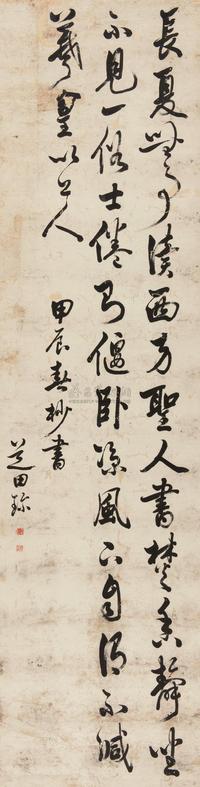 長夏無事讀西方聖人書焚香靜坐
不見一俗士倦即偃臥涼風下自得不減
羲皇以上人
甲辰春杪書
芝田